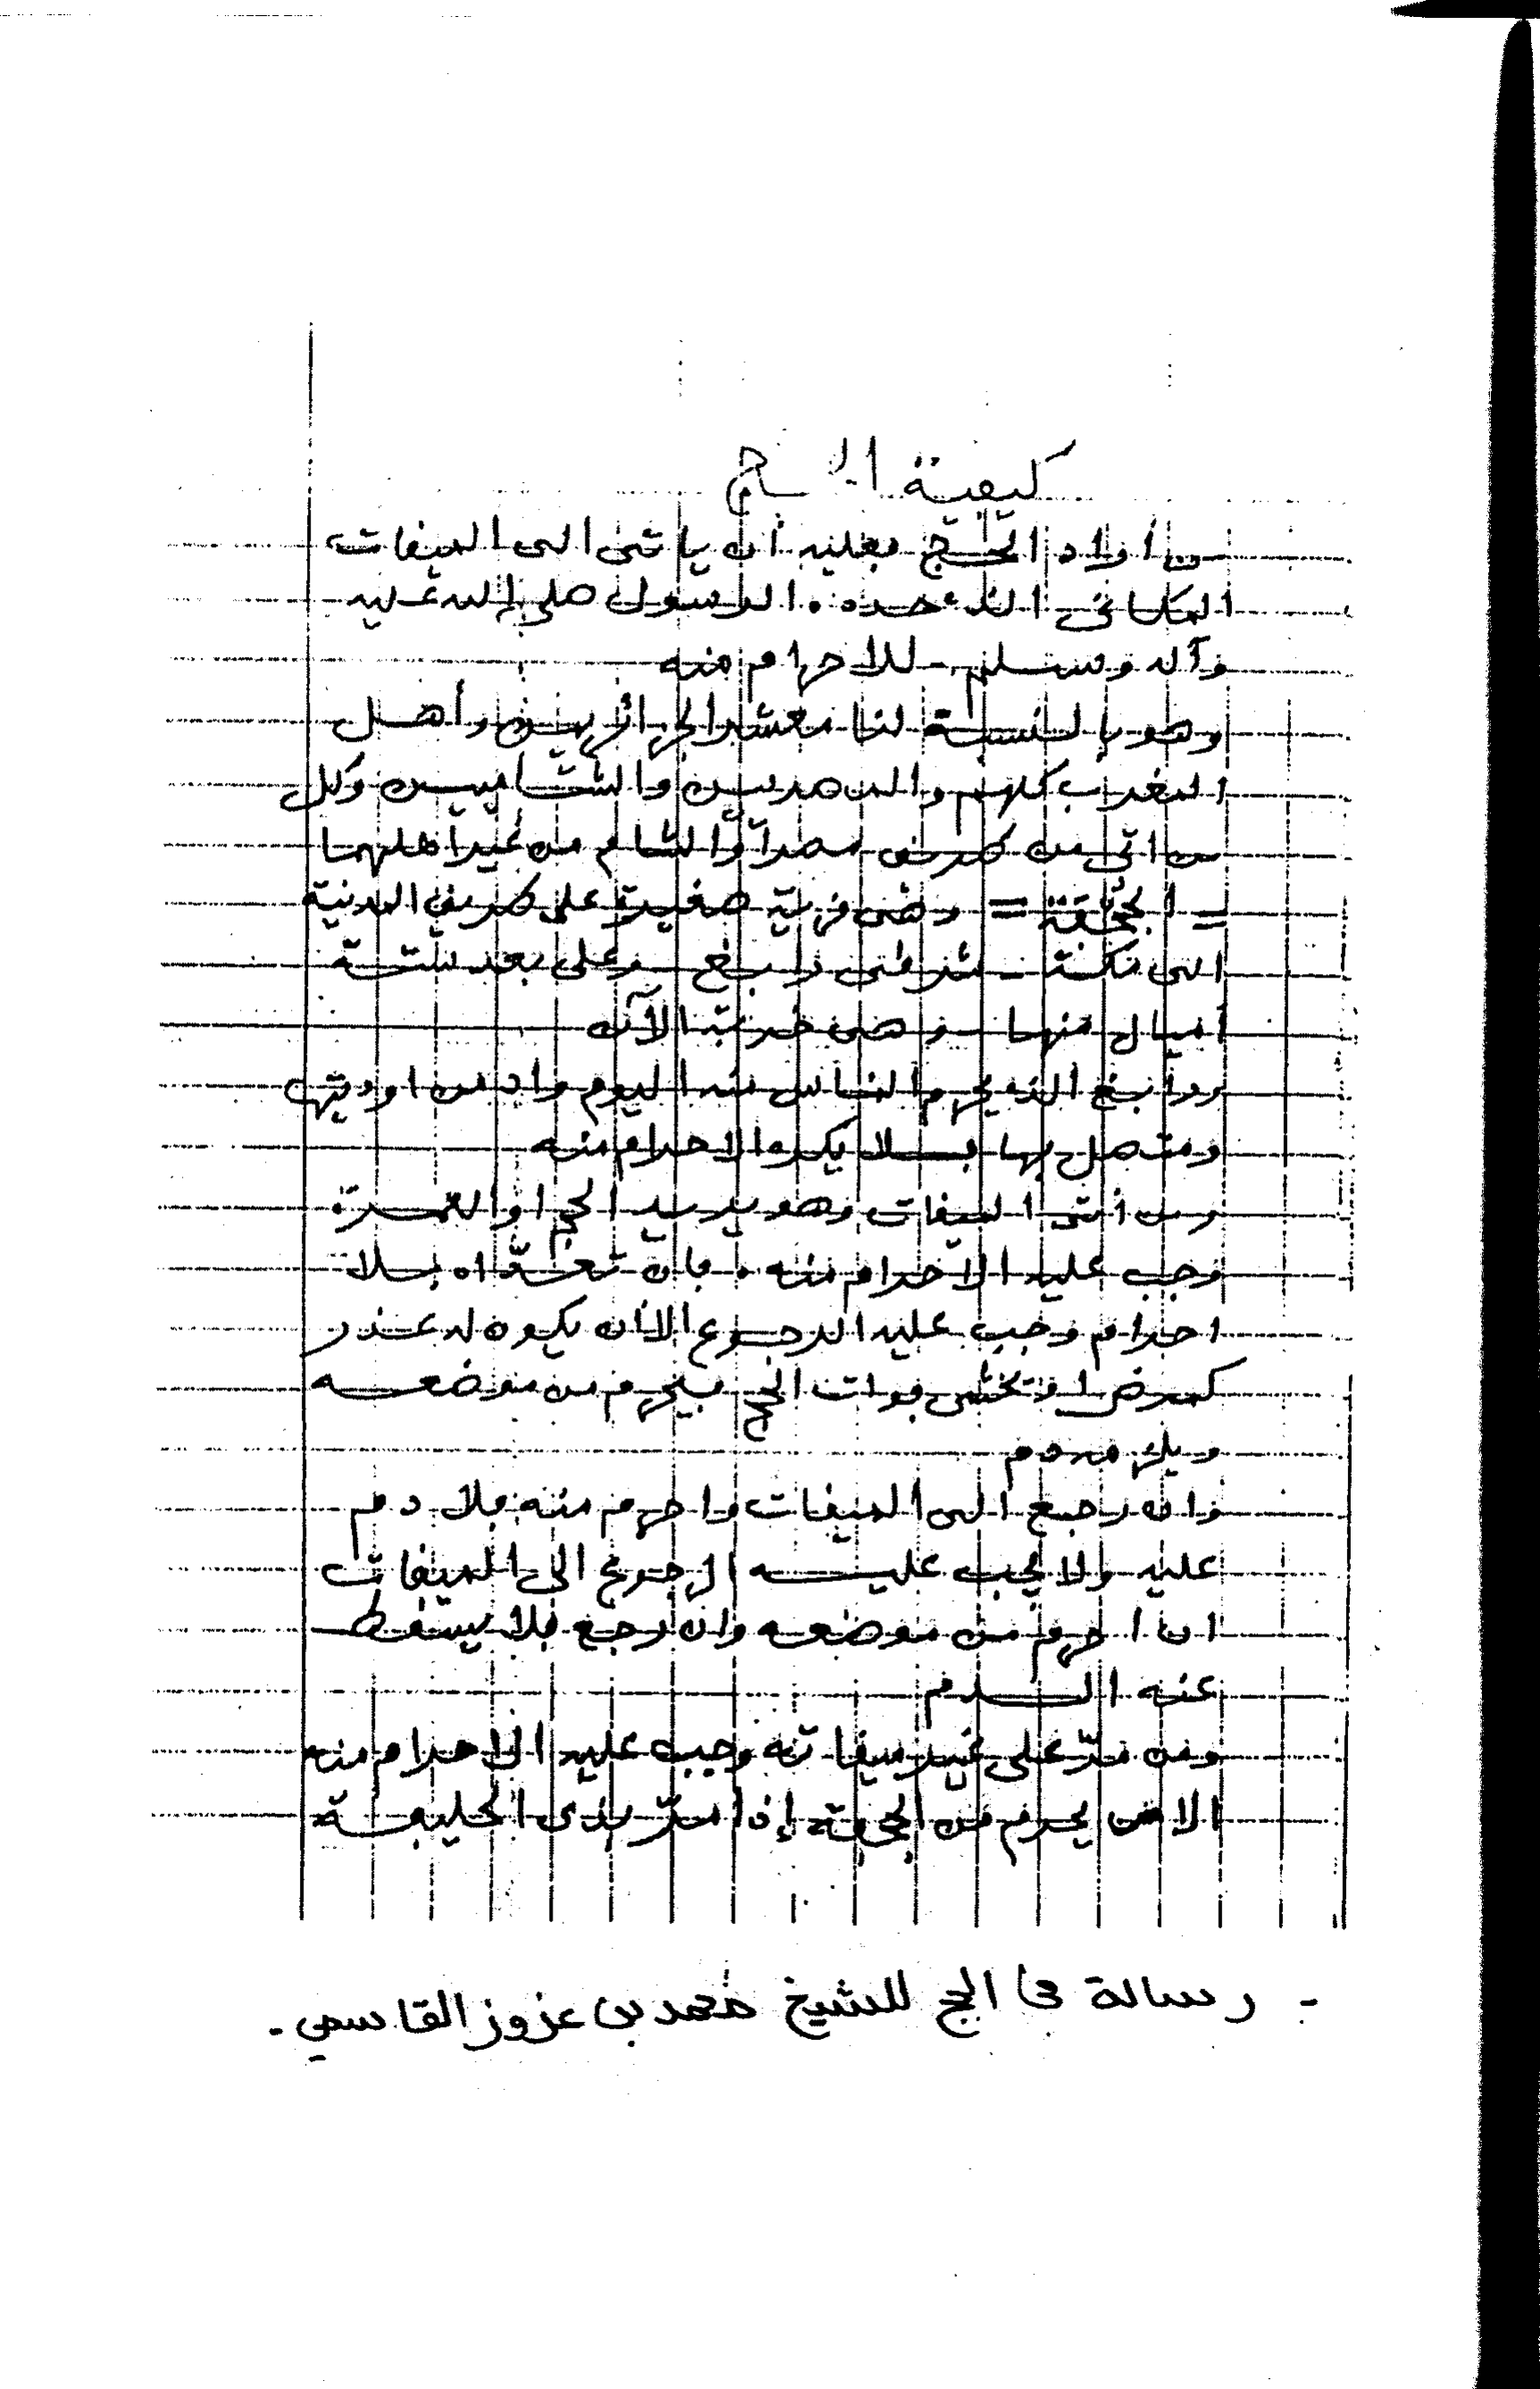 كيفية الحج
من أراد الحج فعليه أن يأتي الى الميقات
المكاني الذي حدده الرسول صلى الله عليه
وآله وسلم - للاحرام منه
وهو بالنسبة لنا معشر الجزائريين وأهل
المغرب كلهم والمصريين والشاميين وكل
من اتى من طريق مصر أو الشام من غير أهلهما
= الجُحْفَة = وهي قرية صغيرة على طريق المدينة
الى مكة - شرقي رابغ - وعلى بعد ستة
أميال منها - وهي خربة الآن
ورابغ الذي يحرم الناس منه اليوم واد من اوديتها
ومتصل بها فلا يكره الاحرام منه
ومن أتى الميقات وهو يريد الحج او العمرة
وجب عليه الاحرام منه . فان تعدّاه بلا
احرام وجب عليه الرجوع الا أن يكون له عذر
كمرض او يخشى فوات الحج فيحرم من موضعه
ويلزمه دم
وان رجع الى الميقات واحرم منه فلا دم
عليه ولا يجب عليه الرجوع الى الميقات
ان احرم من موضعه وان رجع فلا يسقط
عنه الدم
ومن مرّ على غير ميقاته وجب عليه الاحرام منه
الا من يحرم من الجحفة إذا مرّ بذي الحليفة
- رسالة في الحج للشيخ محمد بن عزوز القاسمي -